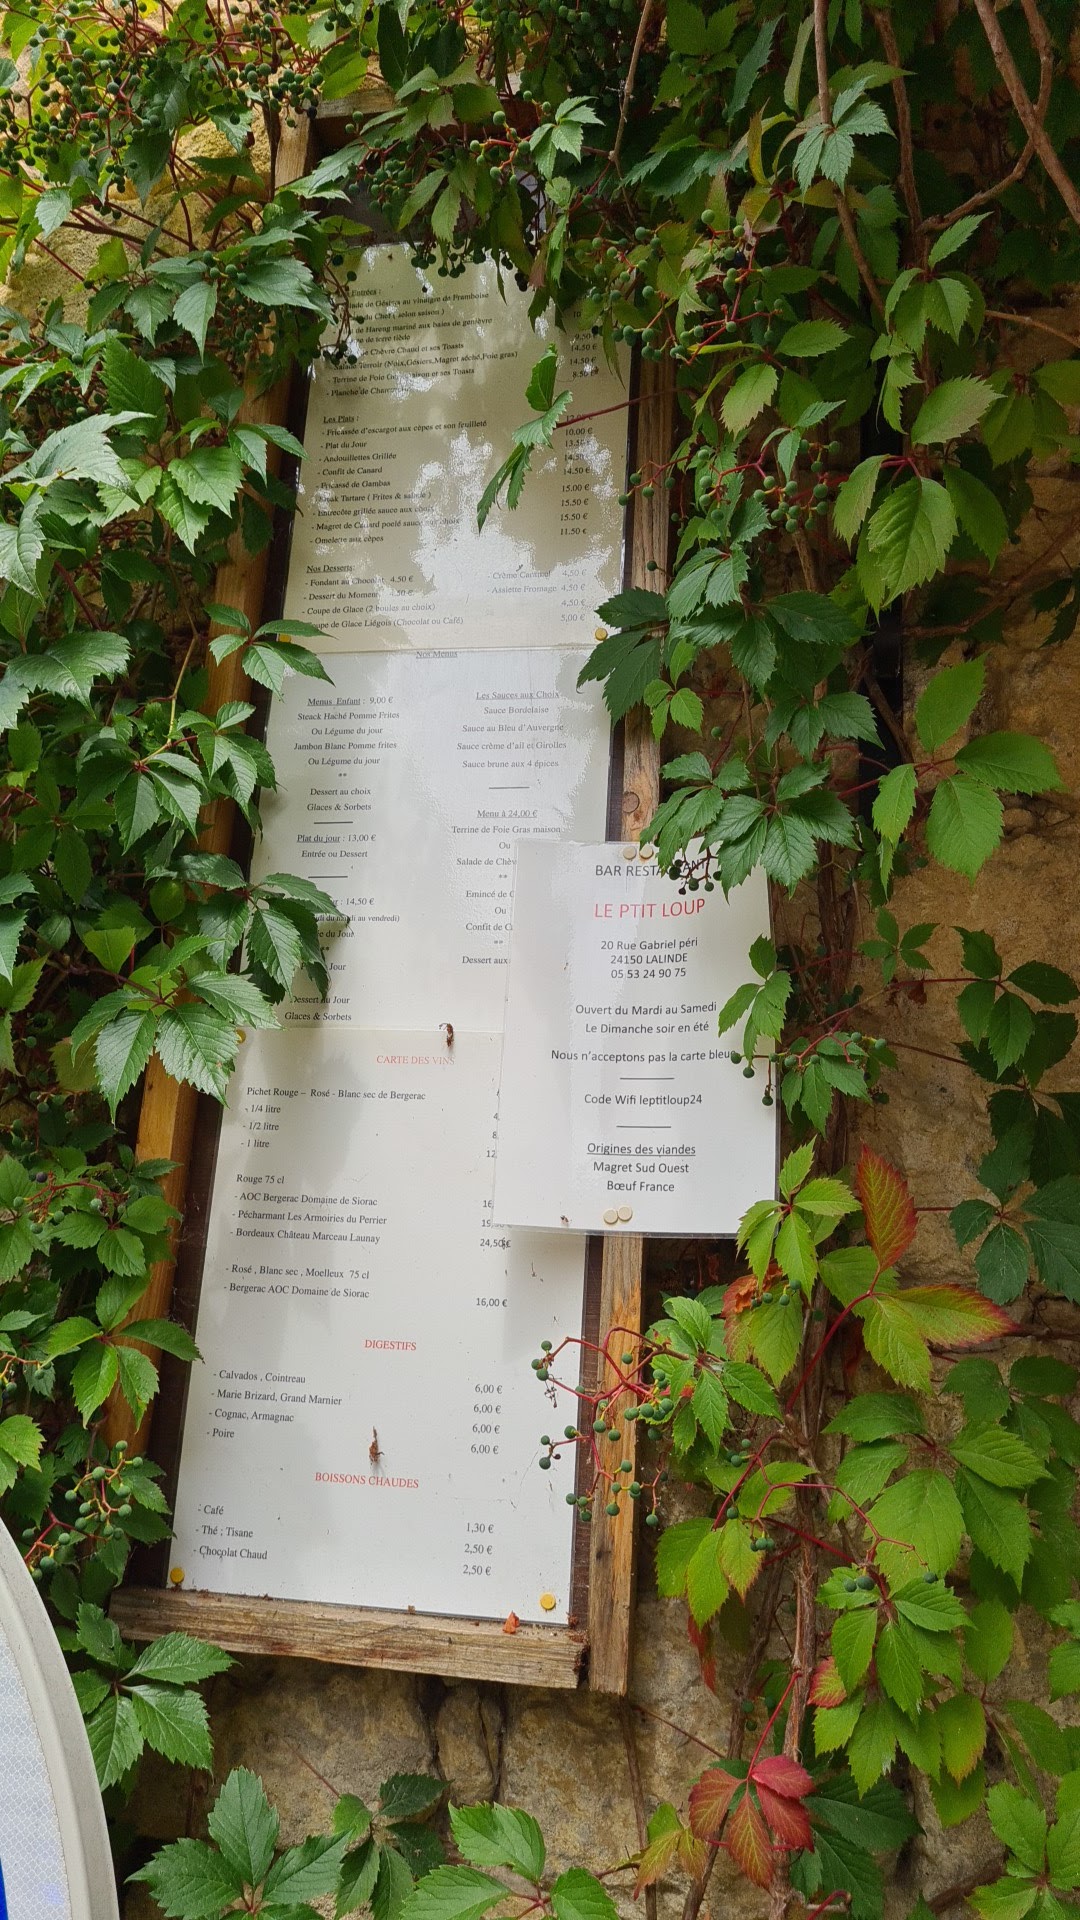 Entrées :
de Gésiers au vinaigre de Framboise
du Chef ( selon saison )
de Hareng mariné aux baies de genièvre
de terre tiède
Chèvre Chaud et ses Toasts
Terroir (Noix,Gésiers,Magret séché,Foie gras) 14.50 €
- Terrine de Foie et ses Toasts 14.50 €
- Planche de 8.50 €
Les Plats :
- Fricassée d'escargot aux cèpes et son feuilleté
- Plat du Jour 10.00 €
- Andouillettes Grillée
- Confit de Canard
- Fricassé de Gambas 14.50 €
Tartare ( Frites & salade ) 15.00 €
- Entrecôte grillée sauce aux 15.50 €
- Magret de Canard poelé sauce 15.50 €
- Omelette aux cèpes 11.50 €
Nos Desserts:
- Fondant au Chocolat 4.50 €
- Crème Caramel 4,50 €
- Dessert du Moment 4.50 €
- Assiette Fromage 4,50 €
- Coupe de Glace (2 boules au choix) 4,50 €
oupe de Glace Liégois (Chocolat ou Café) 5,00 €
Nos Menus
Menus Enfant : 9,00 €
Steack Haché Pomme Frites
Ou Légume du jour
Jambon Blanc Pomme frites
Ou Légume du jour
**
Dessert au choix
Glaces & Sorbets
Plat du jour : 13,00 €
Entrée ou Dessert
: 14,50 €
di au vendredi)
du Jour
**
Jour
Dessert du Jour
Glaces & Sorbets
Les Sauces aux Choix
Sauce Bordelaise
Sauce au Bleu d'Auvergne
Sauce crème d'ail et Girolles
Sauce brune aux 4 épices
Menu à 24,00 €
Terrine de Foie Gras maison
Ou
Salade de Chèv
**
Emincé de
Ou
Confit de C
**
Dessert aux
BAR RESTAURANT
LE PTIT LOUP
20 Rue Gabriel péri
24150 LALINDE
05 53 24 90 75
Ouvert du Mardi au Samedi
Le Dimanche soir en été
Nous n'acceptons pas la carte bleue
Code Wifi leptitloup24
Origines des viandes
Magret Sud Ouest
Bœuf France
CARTE DES VINS
Pichet Rouge – Rosé - Blanc sec de Bergerac
- 1/4 litre 4
- 1/2 litre 8
- 1 litre 12
Rouge 75 cl
- AOC Bergerac Domaine de Siorac 16
- Pécharmant Les Armoiries du Perrier 19
- Bordeaux Château Marceau Launay 24,50€
- Rosé , Blanc sec , Moelleux 75 cl
- Bergerac AOC Domaine de Siorac 16,00 €
DIGESTIFS
- Calvados , Cointreau 6,00 €
- Marie Brizard, Grand Marnier 6,00 €
- Cognac, Armagnac 6,00 €
- Poire 6,00 €
BOISSONS CHAUDES
- Café 1,30 €
- Thé ; Tisane 2,50 €
- Chocolat Chaud 2,50 €